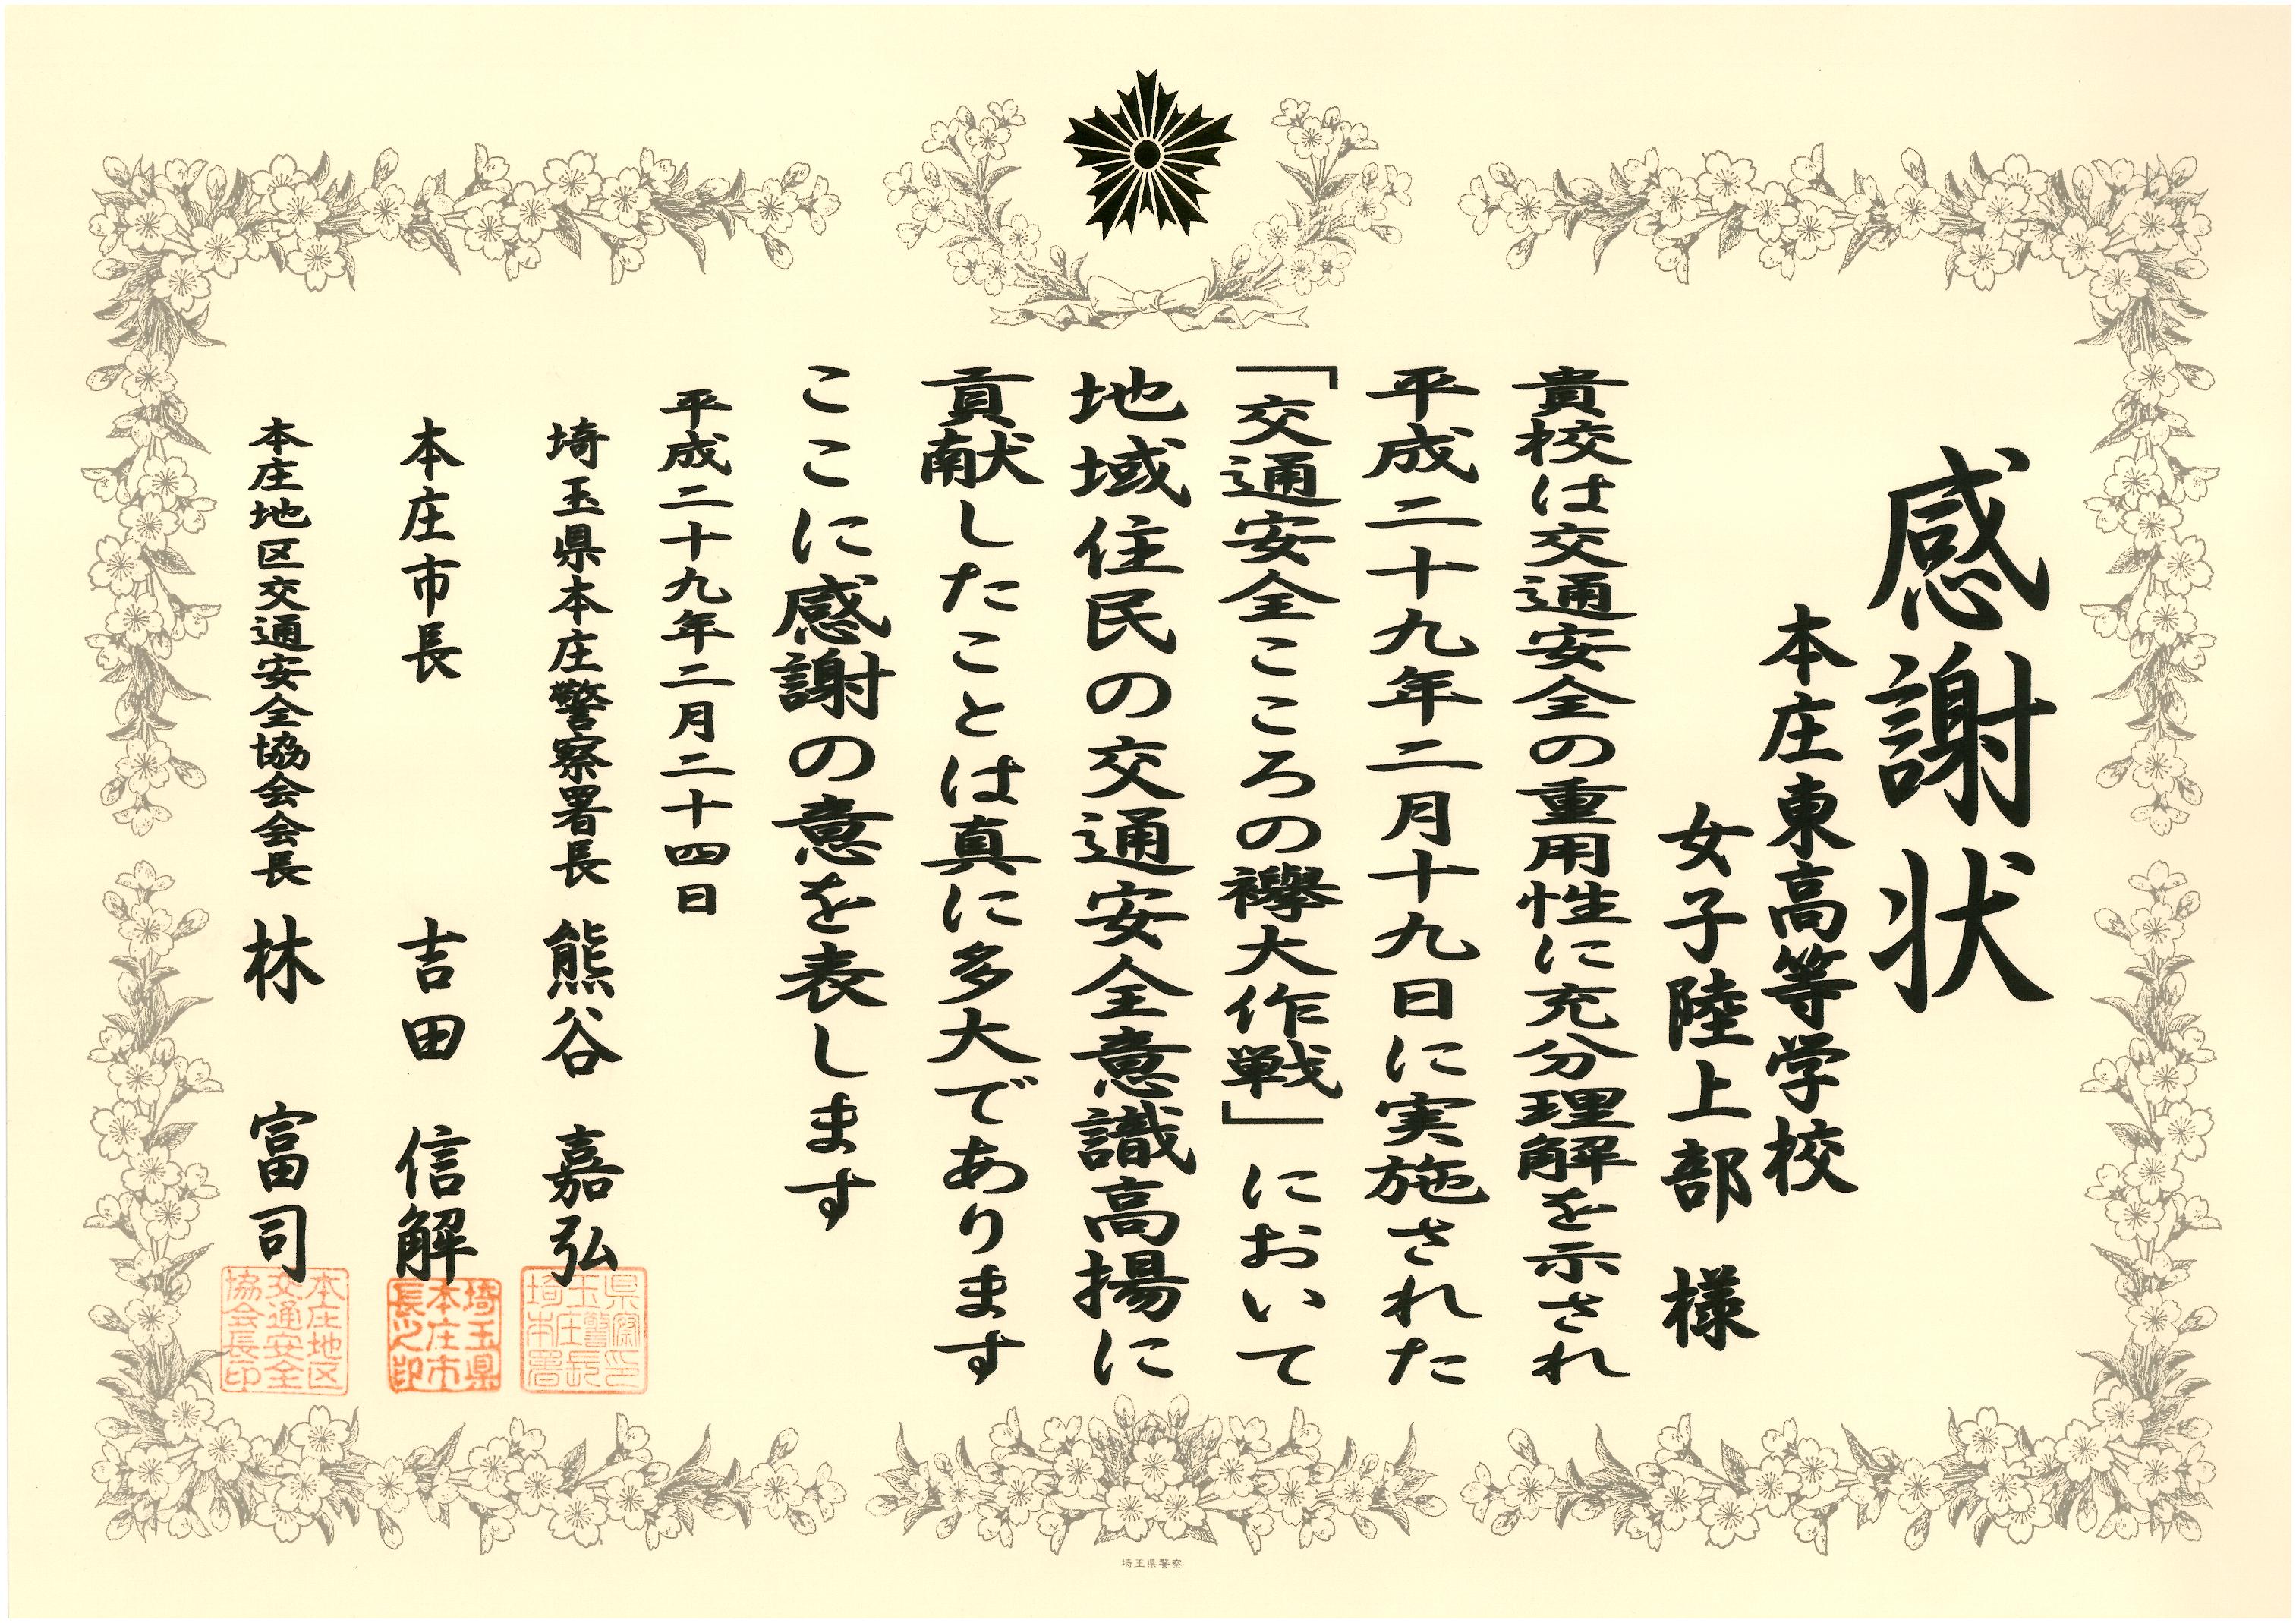 感謝状
本庄東高等学校
女子陸上部 様
貴校は交通安全の重用性に充分理解を示され
平成二十九年二月十九日に実施された
「交通安全こころの襷大作戦」において
地域住民の交通安全意識高揚に
貢献したことは真に多大であります
ここに感謝の意を表します
平成二十九年二月二十四日
埼玉県本庄警察署長 熊谷 嘉弘
県察印
玉庄警長
埼本署
本庄市長 吉田 信解
埼玉県
本庄市
長之印
本庄地区交通安全協会会長 林 富司
本庄地区
交通安全
協会長印
埼玉県警察